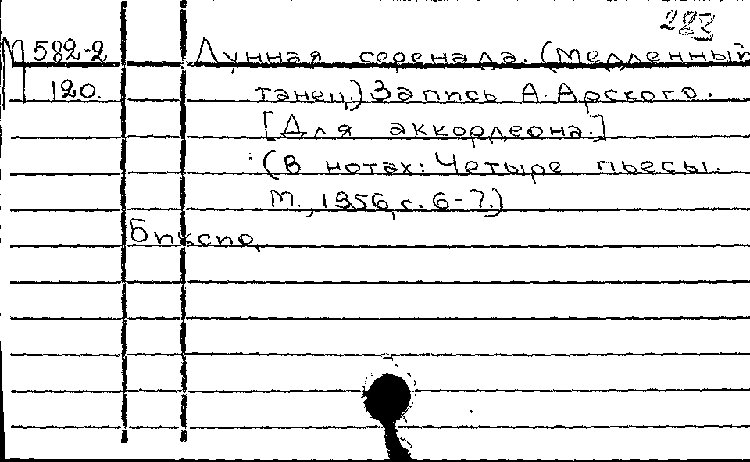 223
М 582-2 Лунная серенада. (Медленный
120. танец) Запись А. Арского.
[Для аккордеона.]
(В нотах: Четыре пьесы.
М., 1956, с. 6-7.)